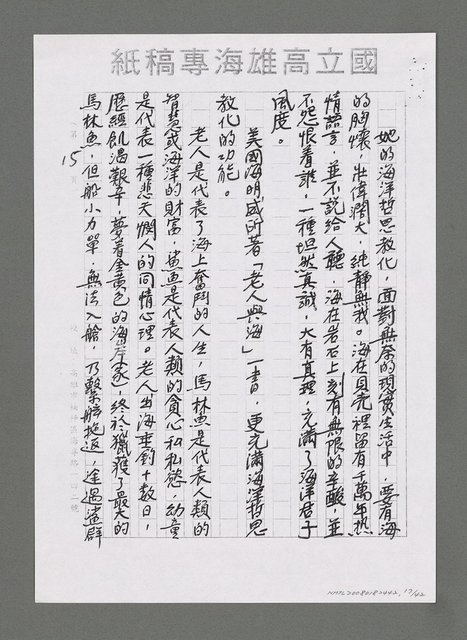 國立高雄海專稿紙
她的海洋哲思教化，面對無奈的現實生活中，要有海
的胸懷，壯偉濶大，純靜無我。海在貝壳裡留有千萬年热
情語言，並不說給人聽，海在岩石上刻有無限的辛酸，並
不怨恨着誰，一種坦然真誠，大有真理，充滿了海洋君子
風度。
美國海明威所著「老人與海」一書，更充滿海洋哲思
教化的功能。
老人是代表了海上奮鬥的人生，馬林魚是代表人類的
智慧或海洋的財富，鯊魚是代表人類的貪心和私慾，幼童
是代表一種悲天憫人的同情心理。老人出海垂釣十數日，
歷經飢渴艱辛，夢着金黃色的海岸家，終於獵獲了最大的
馬林魚，但船小力單，無法入艙，乃繫舷拖返，途遇鯊群
第15頁
NMTL20080182442, 17/42